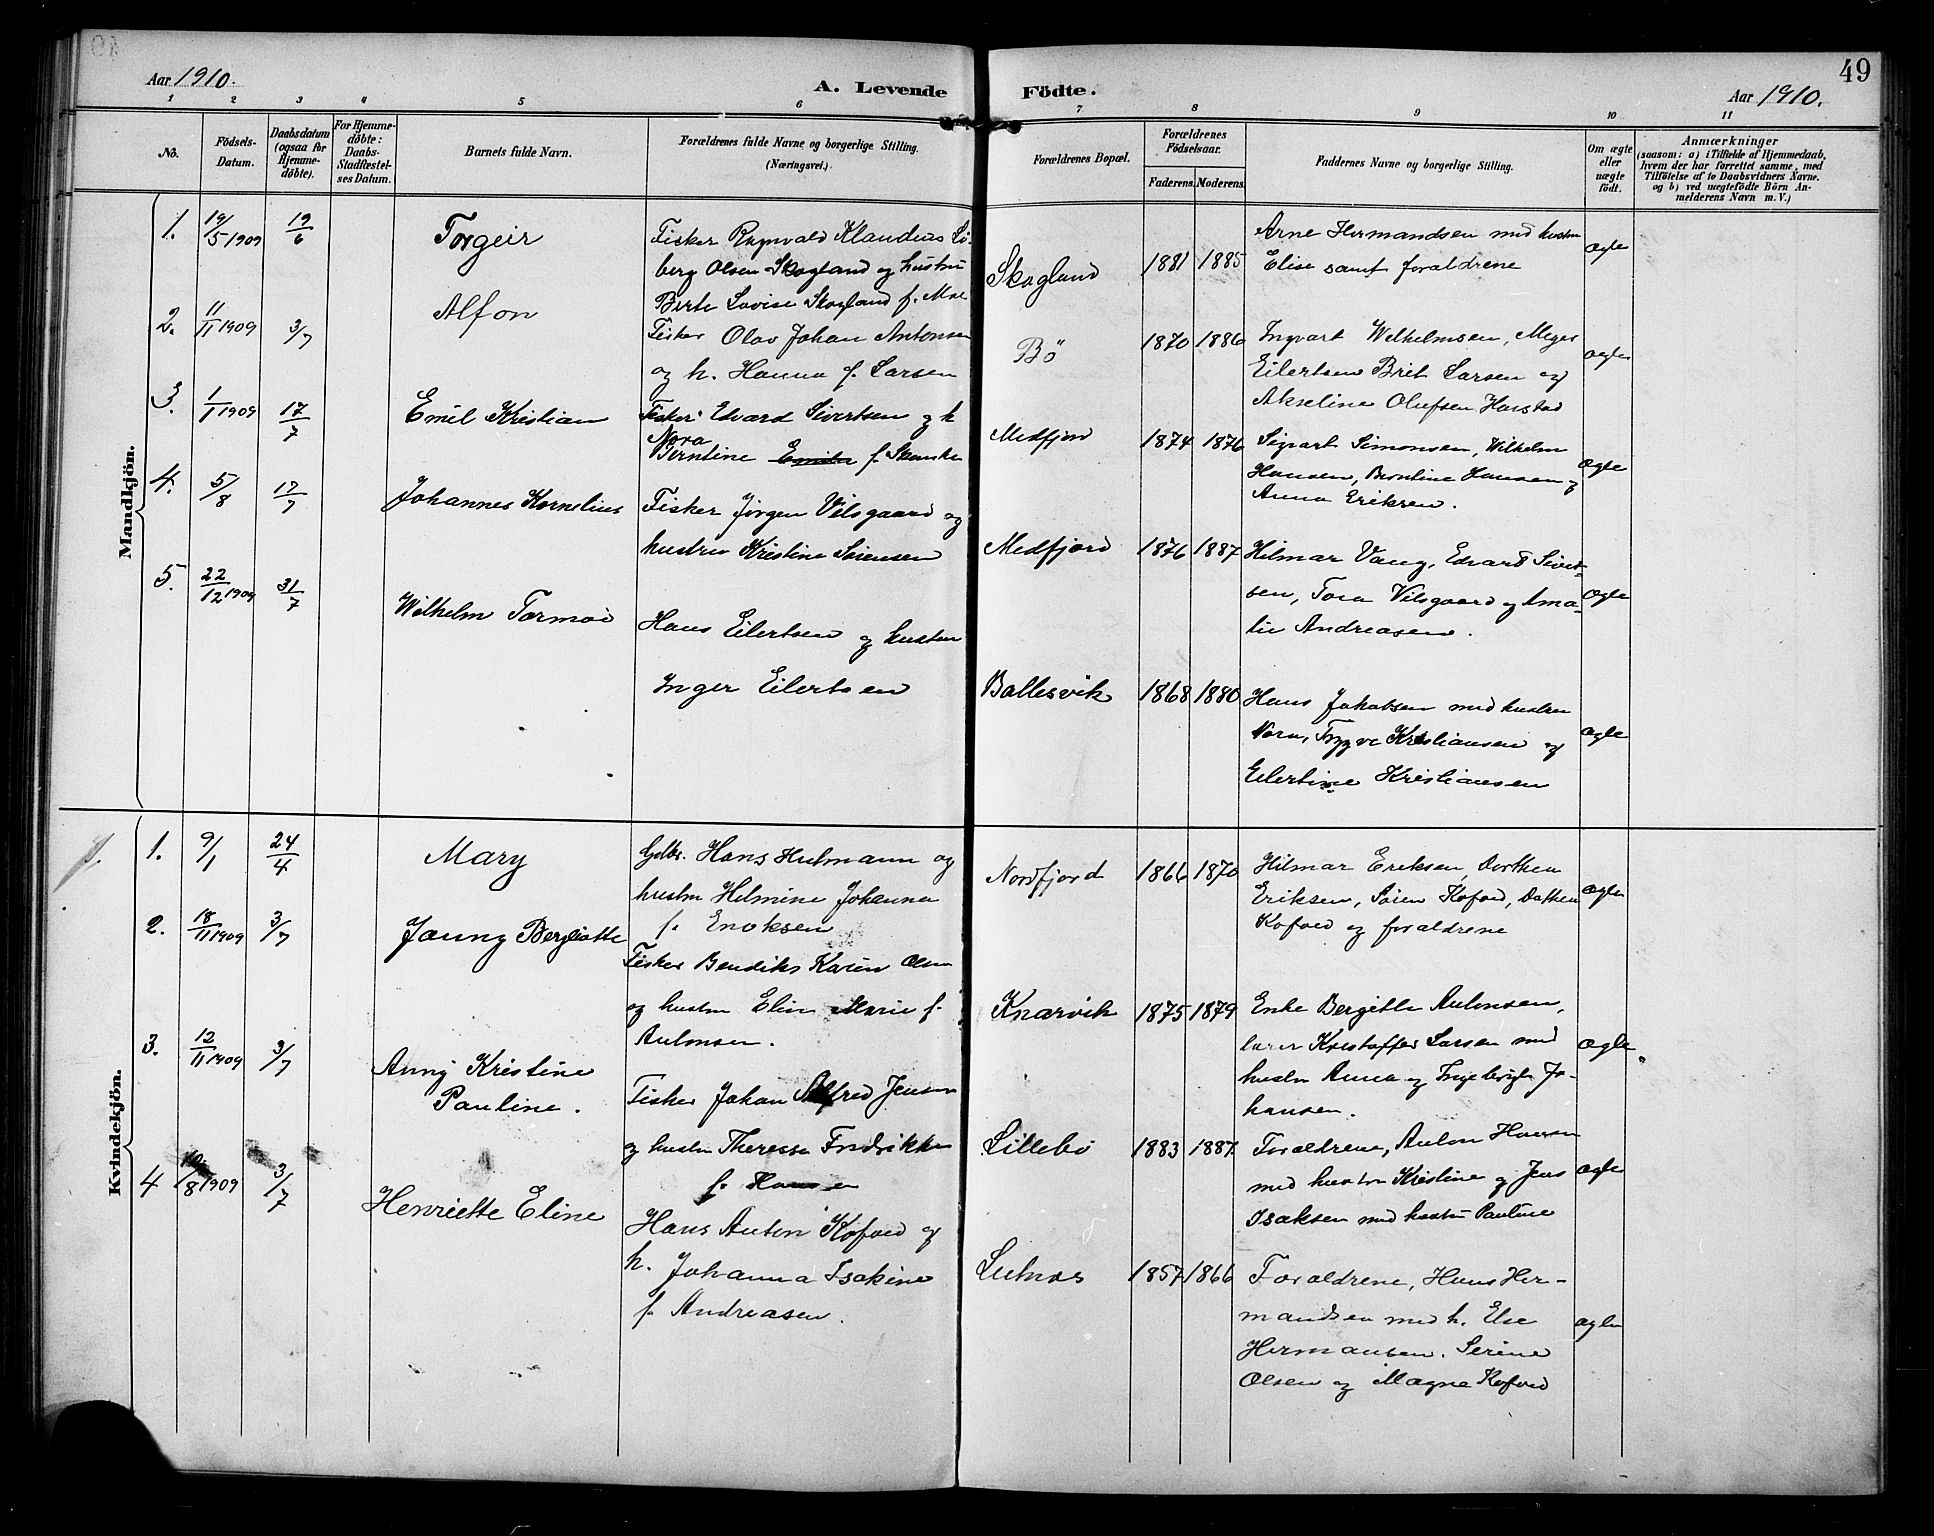 49
Aar 1910.
A. Levende Födte.
Aar 1910.
1 2 3 4 5 6 7 8 9 10 11
No.
Födsels-
Datum.
Daabsdatum
(ogsaa for
Hjemme-
döbte).
For Hjemme-
döbte:
Daabs-
Stadfæstel-
ses Datum.
Barnets fulde Navn.
Forældrenes fulde Navne og borgerlige Stilling.
(Næringsvei.)
Forældrenes Bopæl.
Forældrenes
Födselsaar.
Faderens. Moderens.
Faddernes Navne og borgerlige Stilling.
Om ægte
eller
uægte
födt.
Anmærkninger
(saasom: a) i Tilfælde af Hjemmedaab,
hvem der har forrettet samme, med
Tilföielse af to Daabsvidners Navne.
og b) ved uægtefödte Börn An-
melderens Navn m. V.)
Mandkjön.
1. 19/5 1909 19/6 Torgeir
Fisker Ragnvald Klaudius Li-
berg Olsen Skogland og hustru
Berte Lovise Skogland f. Moe
Skogland 1881 1885
Arne Hermandsen med hustru
Elise samt foraldrene
ægte
2. 11/11 1909 3/7 Alfon
Fisker Olav Johan Antonsen
og h. Hanna f. Larsen
Bö 1870 1886
Ingvart Wilhelmsen, Meyer
Eilertsen Brit Larsen og
Akseline Olufsen Harstad
ægte
3. 1/1 1909 17/7 Emil Kristian
Fisker Edvard Sivertsen og h
Nora
Berntine Emilie f. Skanke
Medfjord 1874 1876
Sigvart Simonsen, Wilhelm
Hansen, Berntine Hansen og
Anna Eriksen.
Ægte
4. 5/8 17/7 Johannes Kornelius
Fisker Jörgen Vilsgaard og
hustru Kristine Sörensen
Medfjord 1876 1887
Hilmar Vang, Edvard Sivert-
sen, Tora Vilsgaard og Ama-
lie Andreasen.
Ægte
5. 22/12 1909 31/7 Wilhelm Tormod
Hans Eilertsen og hustru
Inger Eilertsen
Ballesvik 1868 1880
Hans Jakobsen med hustru
Nora, Trygve Kristiansen og
Eilertine Kristiansen
ægte
Kvindekjön.
1. 9/1 24/4 Mary
Gdbr. Hans Hutmann og
hustru Helmine Johanna
f. Enoksen
Nordfjord 1866 1870
Hilmar Eriksen, Dorthea
Eriksen, Sören Kofoed, Dorthea
Kofoed og foraldrene
ægte
2. 18/11 1909 3/7 Jenny Bergliotte
Fisker Bendiks Karin Olsen
og hustru Elin Marie f.
Antonsen.
Knarvik 1875 1879
Enke Bergitte Antonsen,
lærer Kristoffer Larsen med
hustru Anna og Ingeborg Jo-
hansen.
ægte
3. 12/11 1909 3/7 Anny Kristine
Pauline.
Fisker Johan Alfred Jensen
og hustru Theresse Fredrikke
f. Hansen
Lillebö 1883 1887
Foraldrene, Anton Hansen
med hustru Kristine og Jens
Isaksen med hustru Pauline
ægte
4 10/8 1909 3/7 Henriette Eline
Hans Anton Kofoed og
h. Johanna Isakine
f. Andreasen.
Lutnæs 1857 1866
Foraldrene, Hans Her-
mandsen med h. Else
Hermansen. Serine
Olsen og Magne Kofoed
ægte